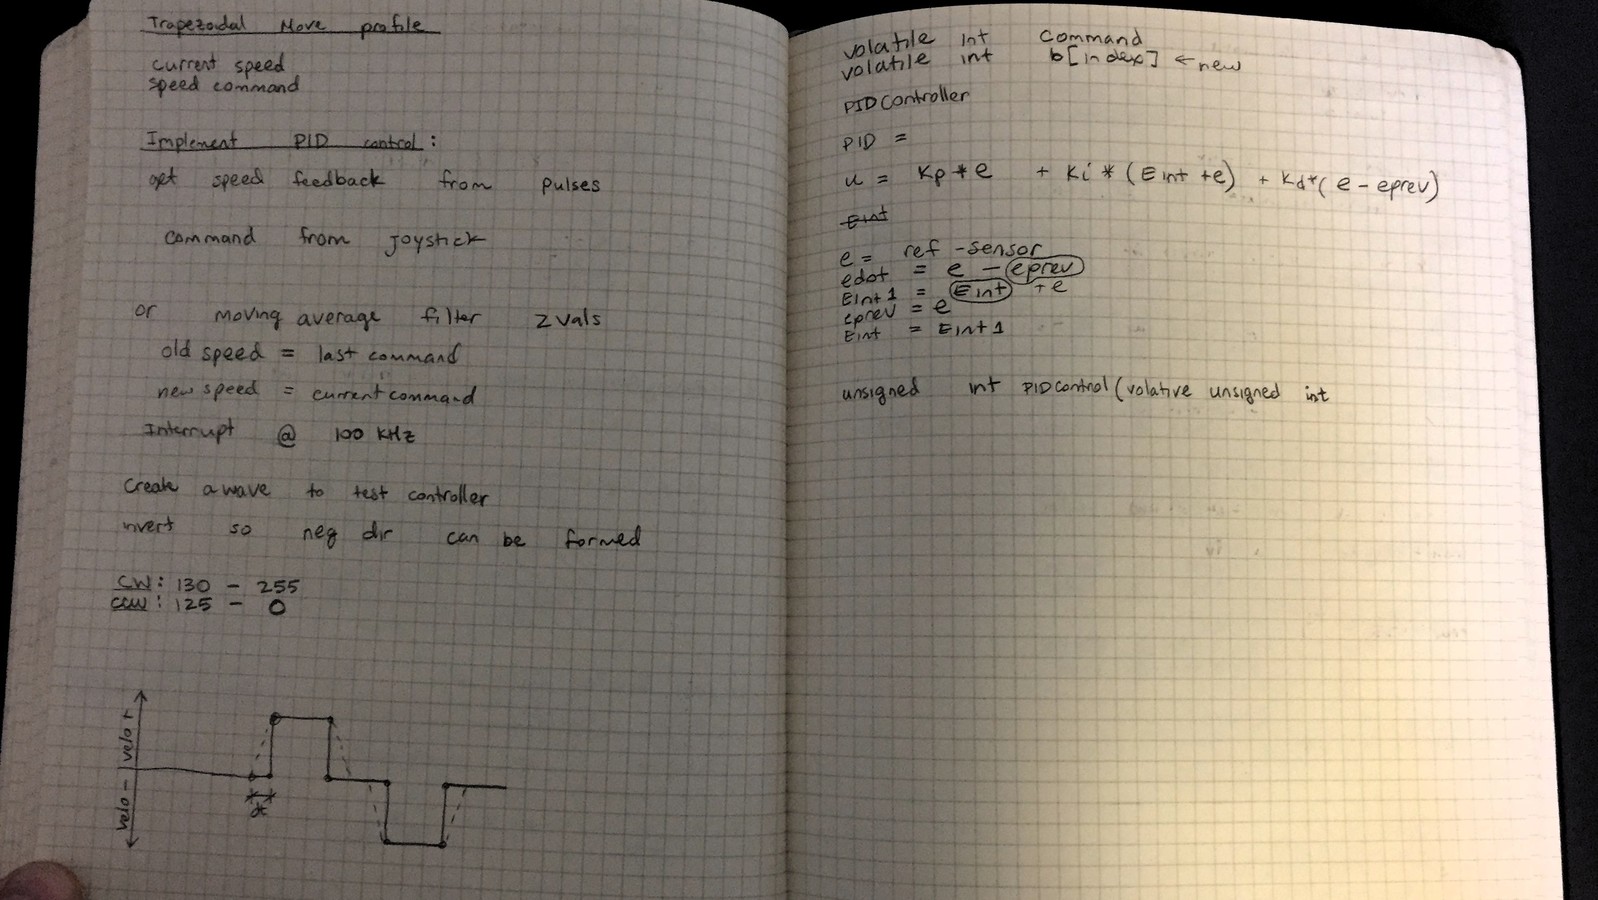 Trapezoidal Move profile
current speed
speed command
Implement PID control:
get speed feedback from pulses
command from joystick
or moving average filter 2 vals
old speed = last command
new speed = current command
Interrupt @ 100 kHz
Create a wave to test controller
invert so neg dir can be formed
CW: 130 - 255
CCW: 125 - 0
velo - velo +
dt
volatile int Command
volatile int b[index] ← new
PIDController
PID =
u = Kp*e + Ki*(Eint+e) + Kd*(e-eprev)
Eint
e = ref - sensor
edot = e - eprev
Eint1 = Eint + e
eprev = e
Eint = Eint1
unsigned int PIDcontrol(volative unsigned int